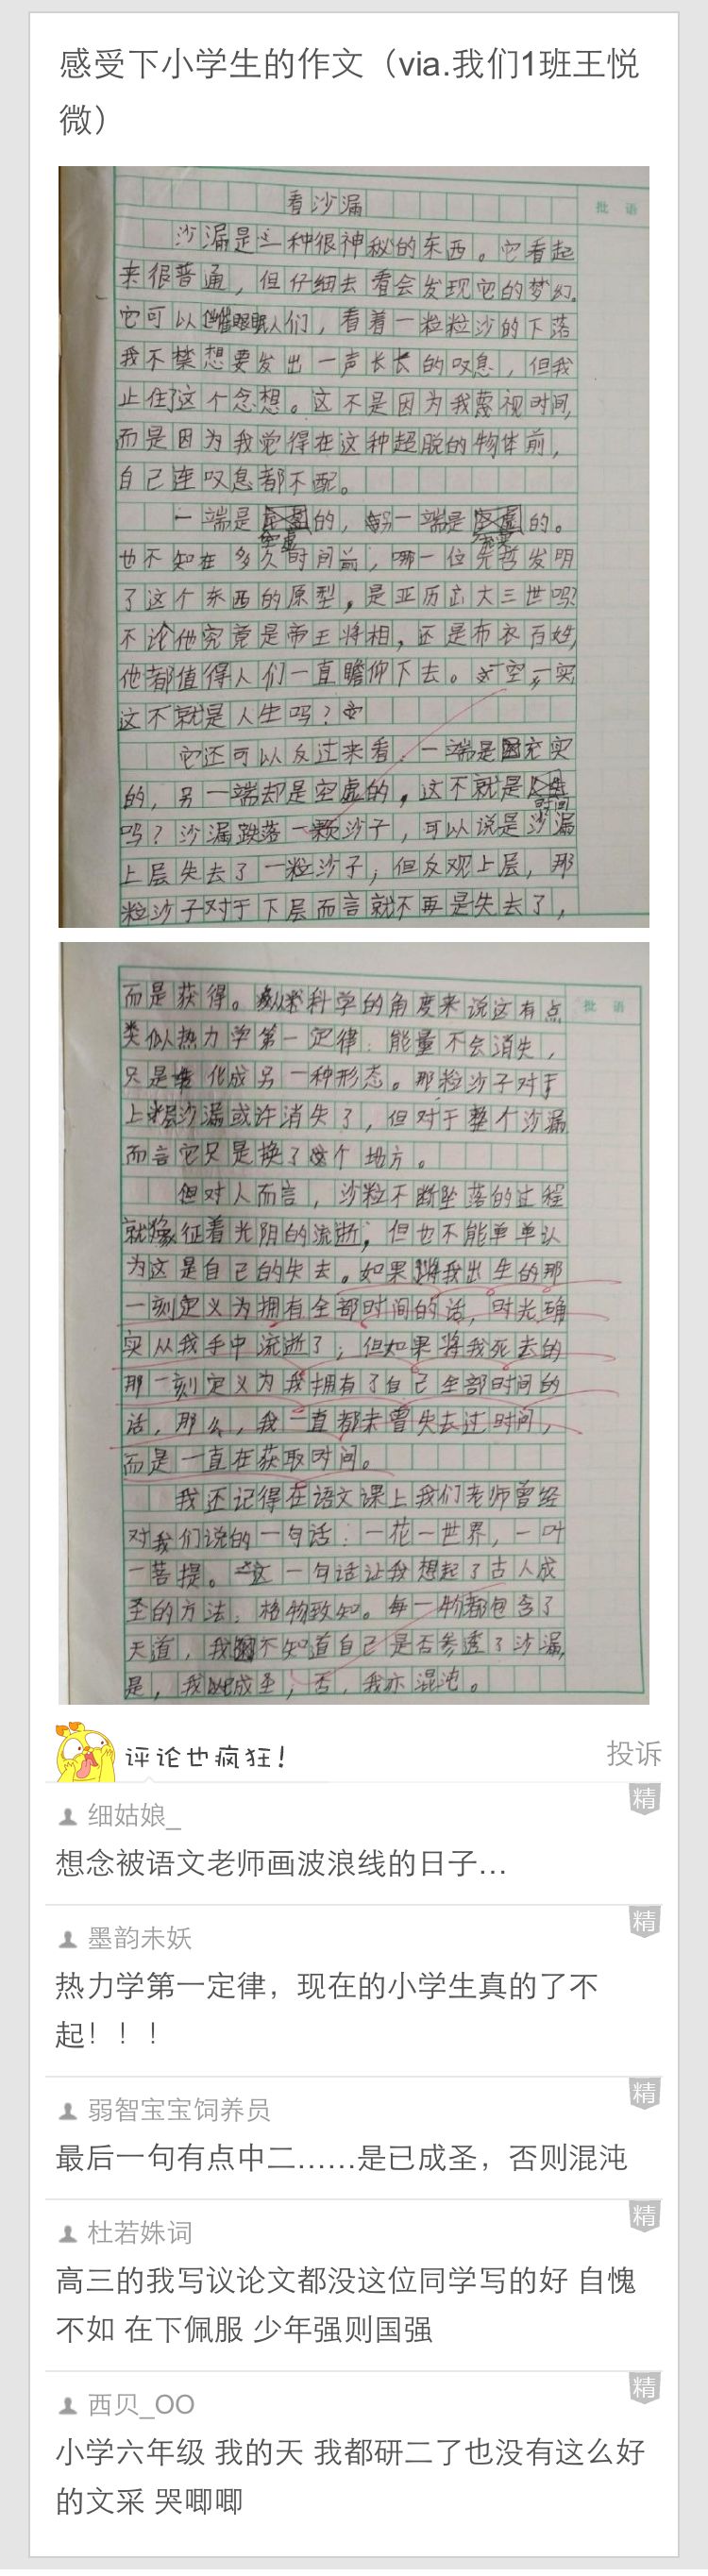 感受下小学生的作文（via.我们1班王悦
微）
看沙漏
批 语
沙漏是一种很神秘的东西。它看起
来很普通，但仔细去看会发现它的梦幻。
它可以催眠人们，看着一粒粒沙的下落
我不禁想要发出一声长长的叹息，但我
止住了这个念想。这不是因为我蔑视时间，
而是因为我觉得在这种超脱的物体前，
自己连叹息都不配。
一端是空虚的，另一端是充实的。
也不知在多久时间前，哪一位先哲发明
了这个东西的原型，是亚历山大三世吗？
不论他究竟是帝王将相，还是布衣百姓，
他都值得人们一直瞻仰下去。一空一实，
这不就是人生吗？
它还可以反过来看，一端是充实
的，另一端却是空虚的，这不就是时间
吗？沙漏跌落一颗沙子，可以说是沙漏
上层失去了一粒沙子；但反观上层，那
粒沙子对于下层而言就不再是失去了，
而是获得。从科学的角度来说这有点
批 语
类似热力学第一定律：能量不会消失，
只是转化成另一种形态。那粒沙子对于
上层沙漏或许消失了，但对于整个沙漏
而言它只是换了个地方。
但对人而言，沙粒不断坠落的过程
就像征着光阴的流逝；但也不能单单认
为这是自己的失去。如果将我出生的那
一刻定义为拥有全部时间的话，时光确
实从我手中流逝了；但如果将我死去的
那一刻定义为我拥有了自己全部时间的
话，那么，我一直都未曾失去过时间，
而是一直在获取时间。
我还记得在语文课上我们老师曾经
对我们说的一句话：一花一世界，一叶
一菩提。这一句话让我想起了古人成
圣的方法：格物致知。每一物都包含了
天道，我不知道自己是否参透了沙漏，
是，我已成圣，否，我亦混沌。
评论也疯狂！
投诉
细姑娘_
精
想念被语文老师画波浪线的日子…
墨韵未妖
精
热力学第一定律，现在的小学生真的了不
起！！！
弱智宝宝饲养员
精
最后一句有点中二……是已成圣，否则混沌
杜若姝词
精
高三的我写议论文都没这位同学写的好 自愧
不如 在下佩服 少年强则国强
西贝_OO
精
小学六年级 我的天 我都研二了也没有这么好
的文采 哭唧唧